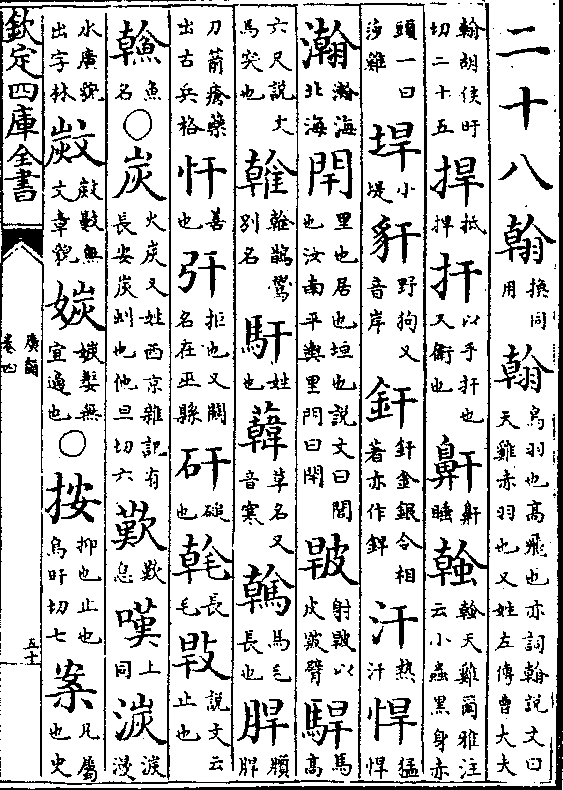 二十八翰換同用翰鳥羽也髙飛也亦詞翰説文曰天雞赤羽也又姓左傳曹大夫
翰胡侯旰切二十五捍抵捍扞以手扞也又衛也鼾鼾睡螒螒天雞爾雅注云小蟲黒身赤
頭一曰莎雞垾小堤豻野狗又音岸釬釬金銀令相著亦作銲汗熱汗悍猛悍
瀚瀚海北海閈里也居也垣也説文曰閭也汝南平輿里門曰閈𤿧射𤿧以皮臂駻馬髙
六尺説文馬突也雗雗鵲鸒别名馯姓也草名又音寒䮧馬毛長也
刀箭瘡藥出古兵格忓善也㢨拒也又關名在巫縣矸磓也長毛㪋説文云止也
魚名○炭火炭又姓西京雜記有長安炭虯也他旦切六歎歎息嘆上同湠湠漫
水廣皃出字林無文章皃無宜適也○按抑也止也烏旰切七案几屬也史
欽定四庫全書
廣韻
卷四
五十